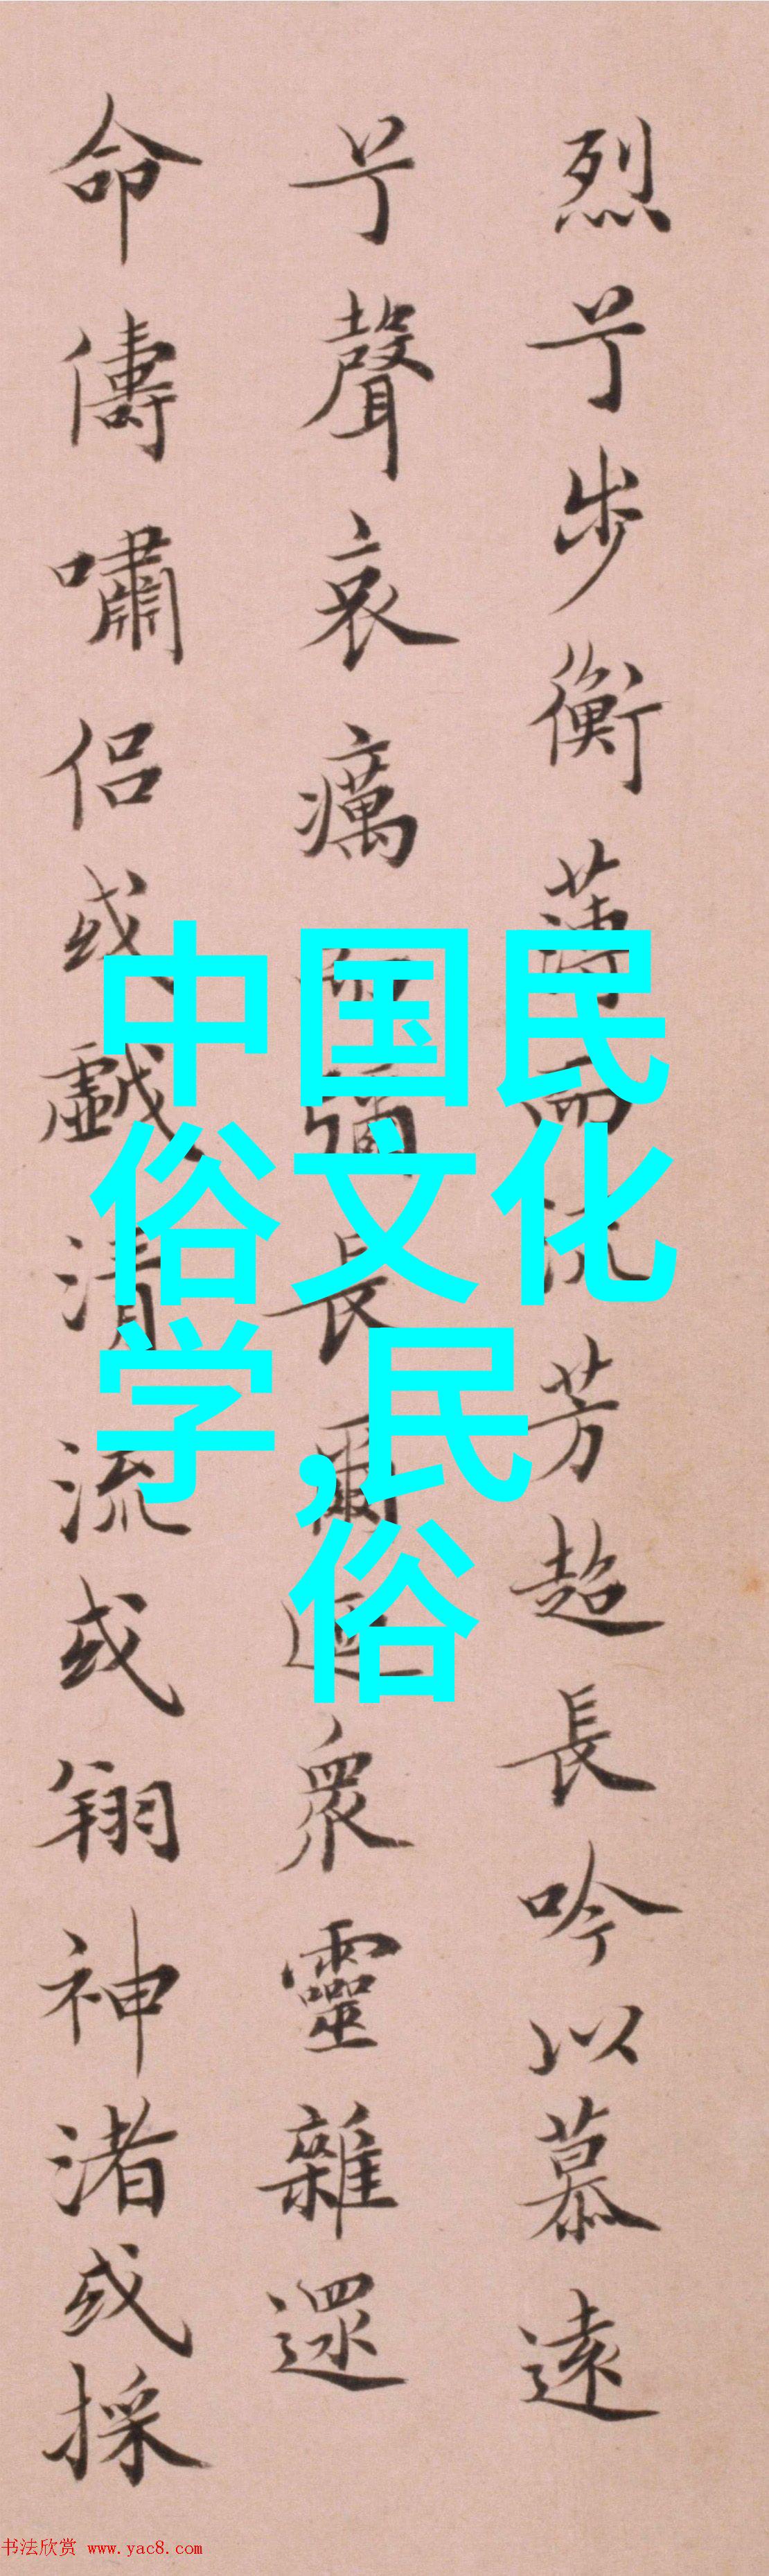 烈兮步衡薄而流芳超長吟以慕遠
兮聲哀癘而彌長爾迺眾靈雜遝
命儔嘯侶或戲清流或翔神渚或採
中国民
俗文化
学,民
俗
书法欣赏 www.yac8.com